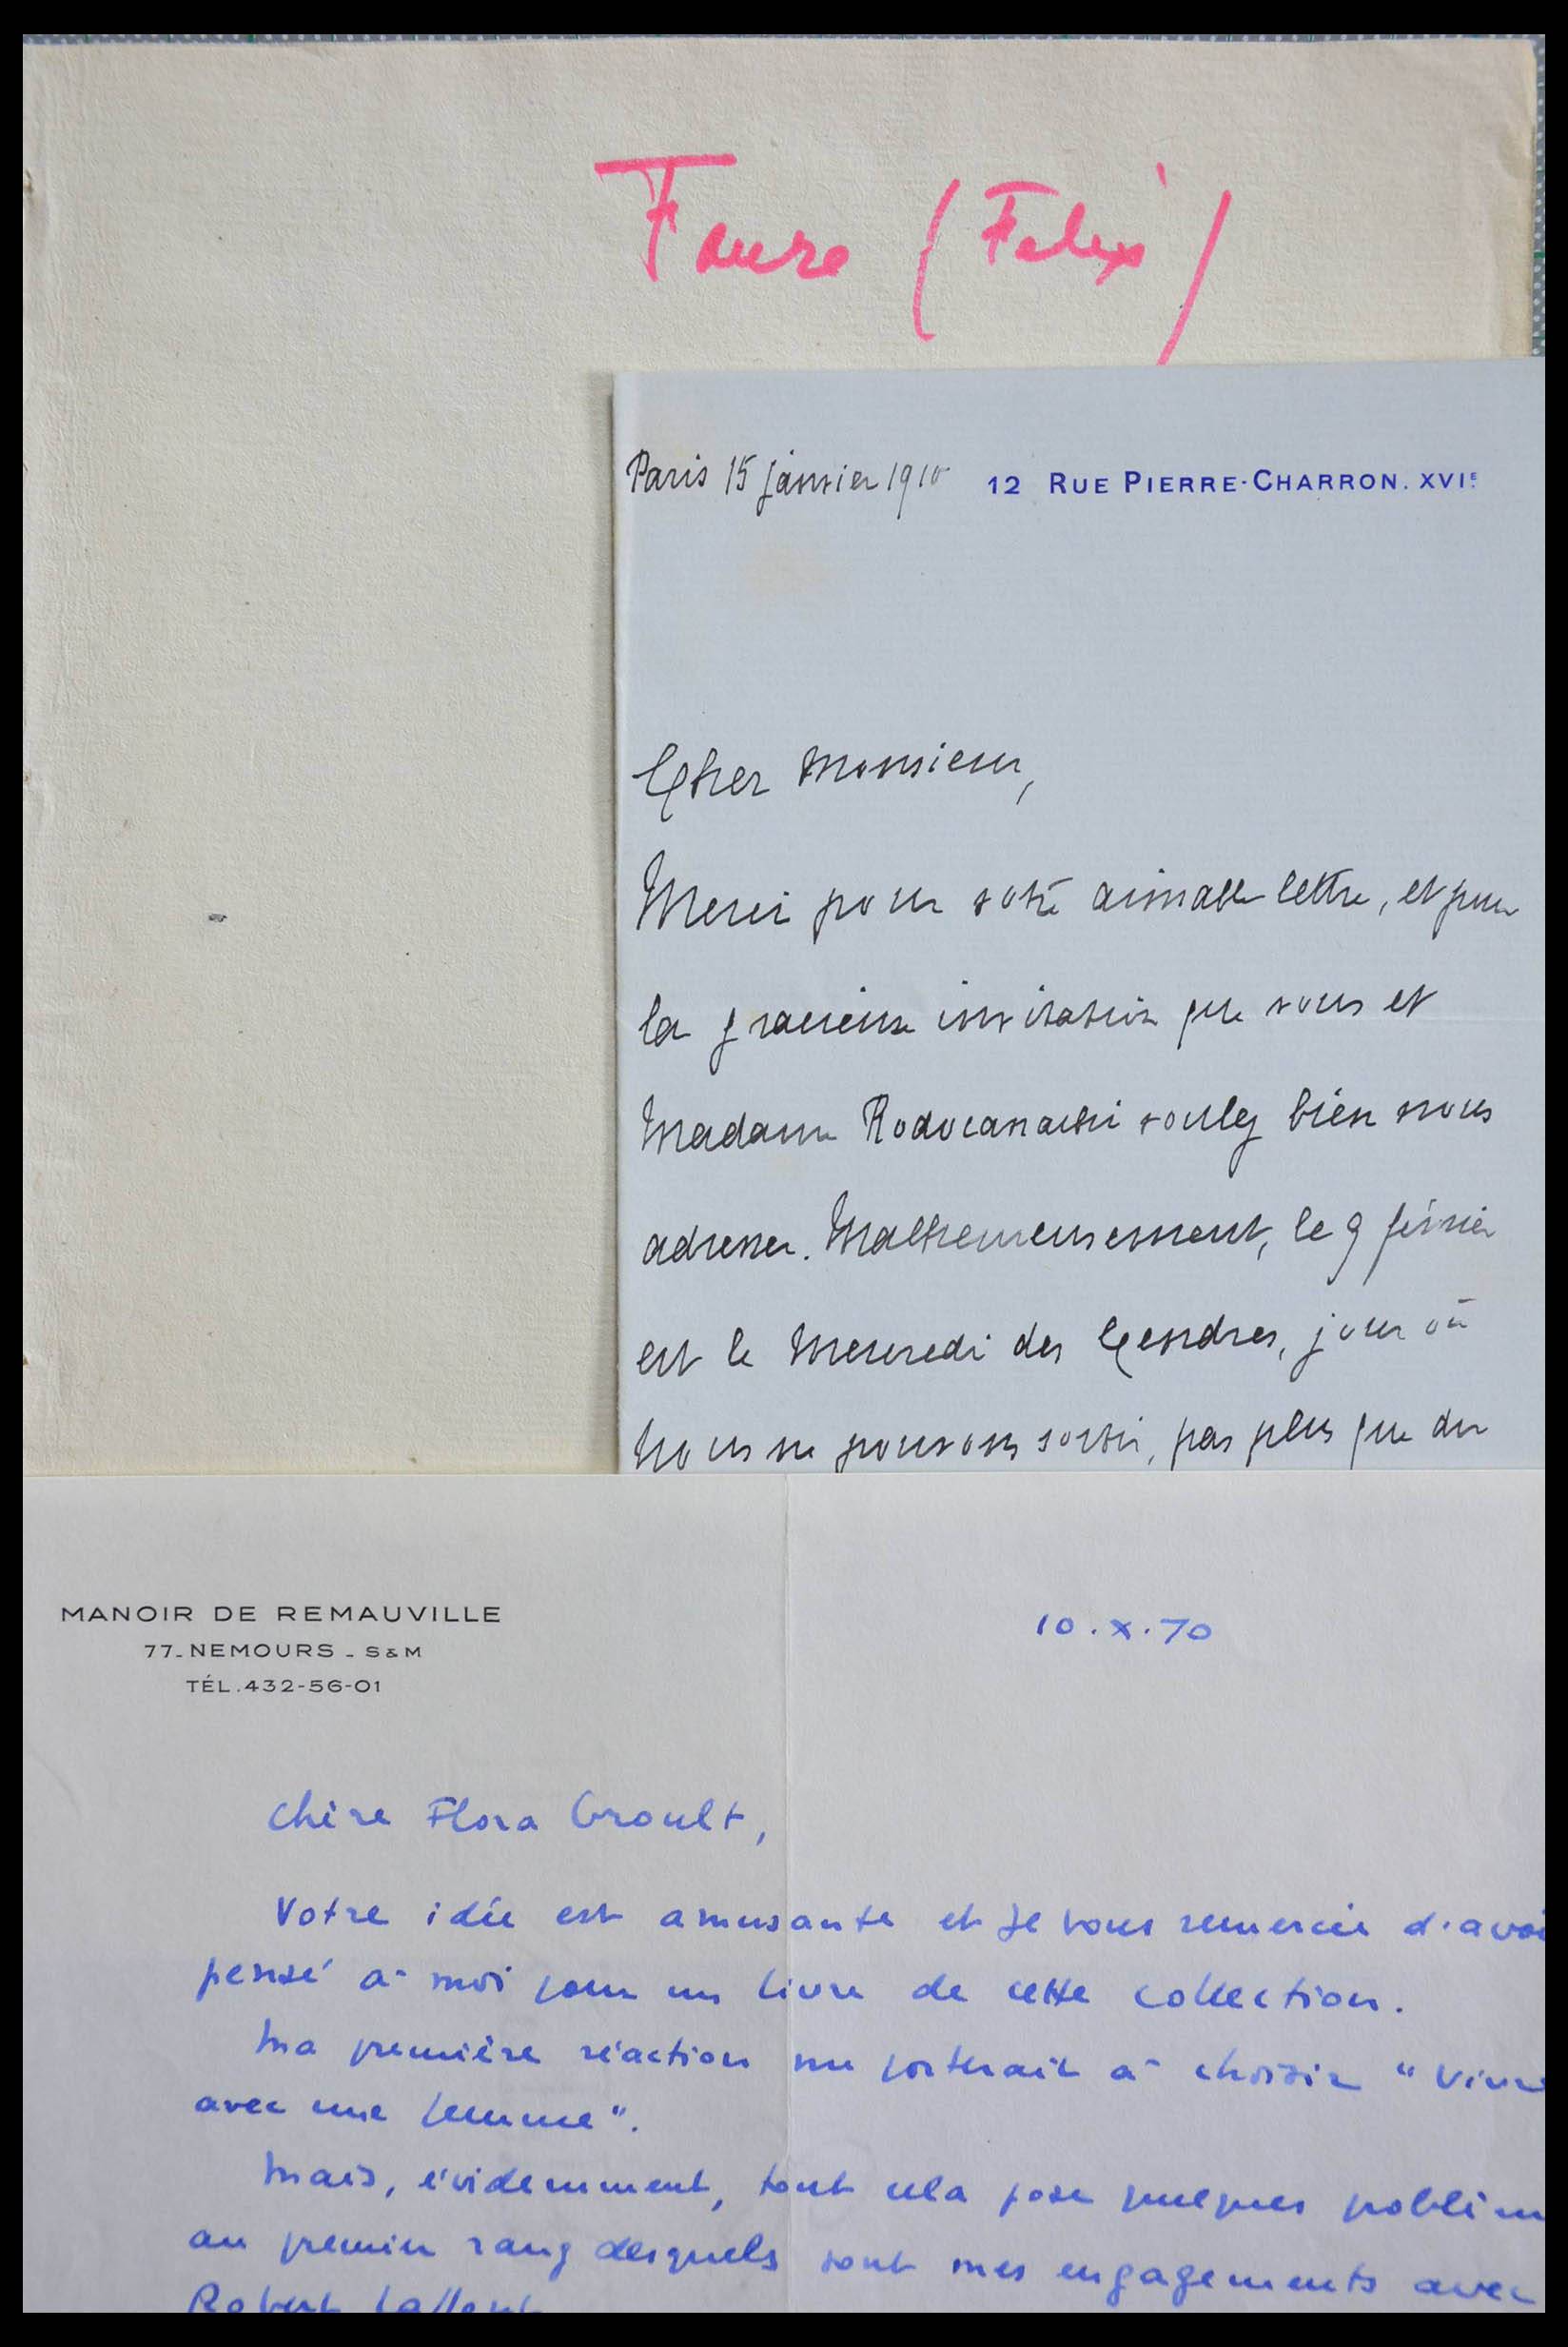 Faure (Felix)
Paris 15 janvier 1910 12 RUE PIERRE-CHARRON. XVIE
Cher Monsieur,
Merci pour votre aimable lettre, et pour
la gracieuse invitation que vous et
Madame Rodocanachi voulez bien nous
adresser. Malheureusement, le 9 février
est le Mercredi des Cendres, jour où
nous ne pouvons sortir, pas plus que du
MANOIR DE REMAUVILLE
77-NEMOURS - S&M
TÉL.432-56-01
10.X.70
Chère Flora Groult,
Votre idée est amusante et je vous remercie d'avoi
pensé à moi pour un livre de cette collection.
Ma première réaction me porterait à choisir "Vivre
avec une femme".
Mais, évidemment, tout cela pose quelques problèm
au premier rang desquels sont mes engagements avec
Robert Laffont